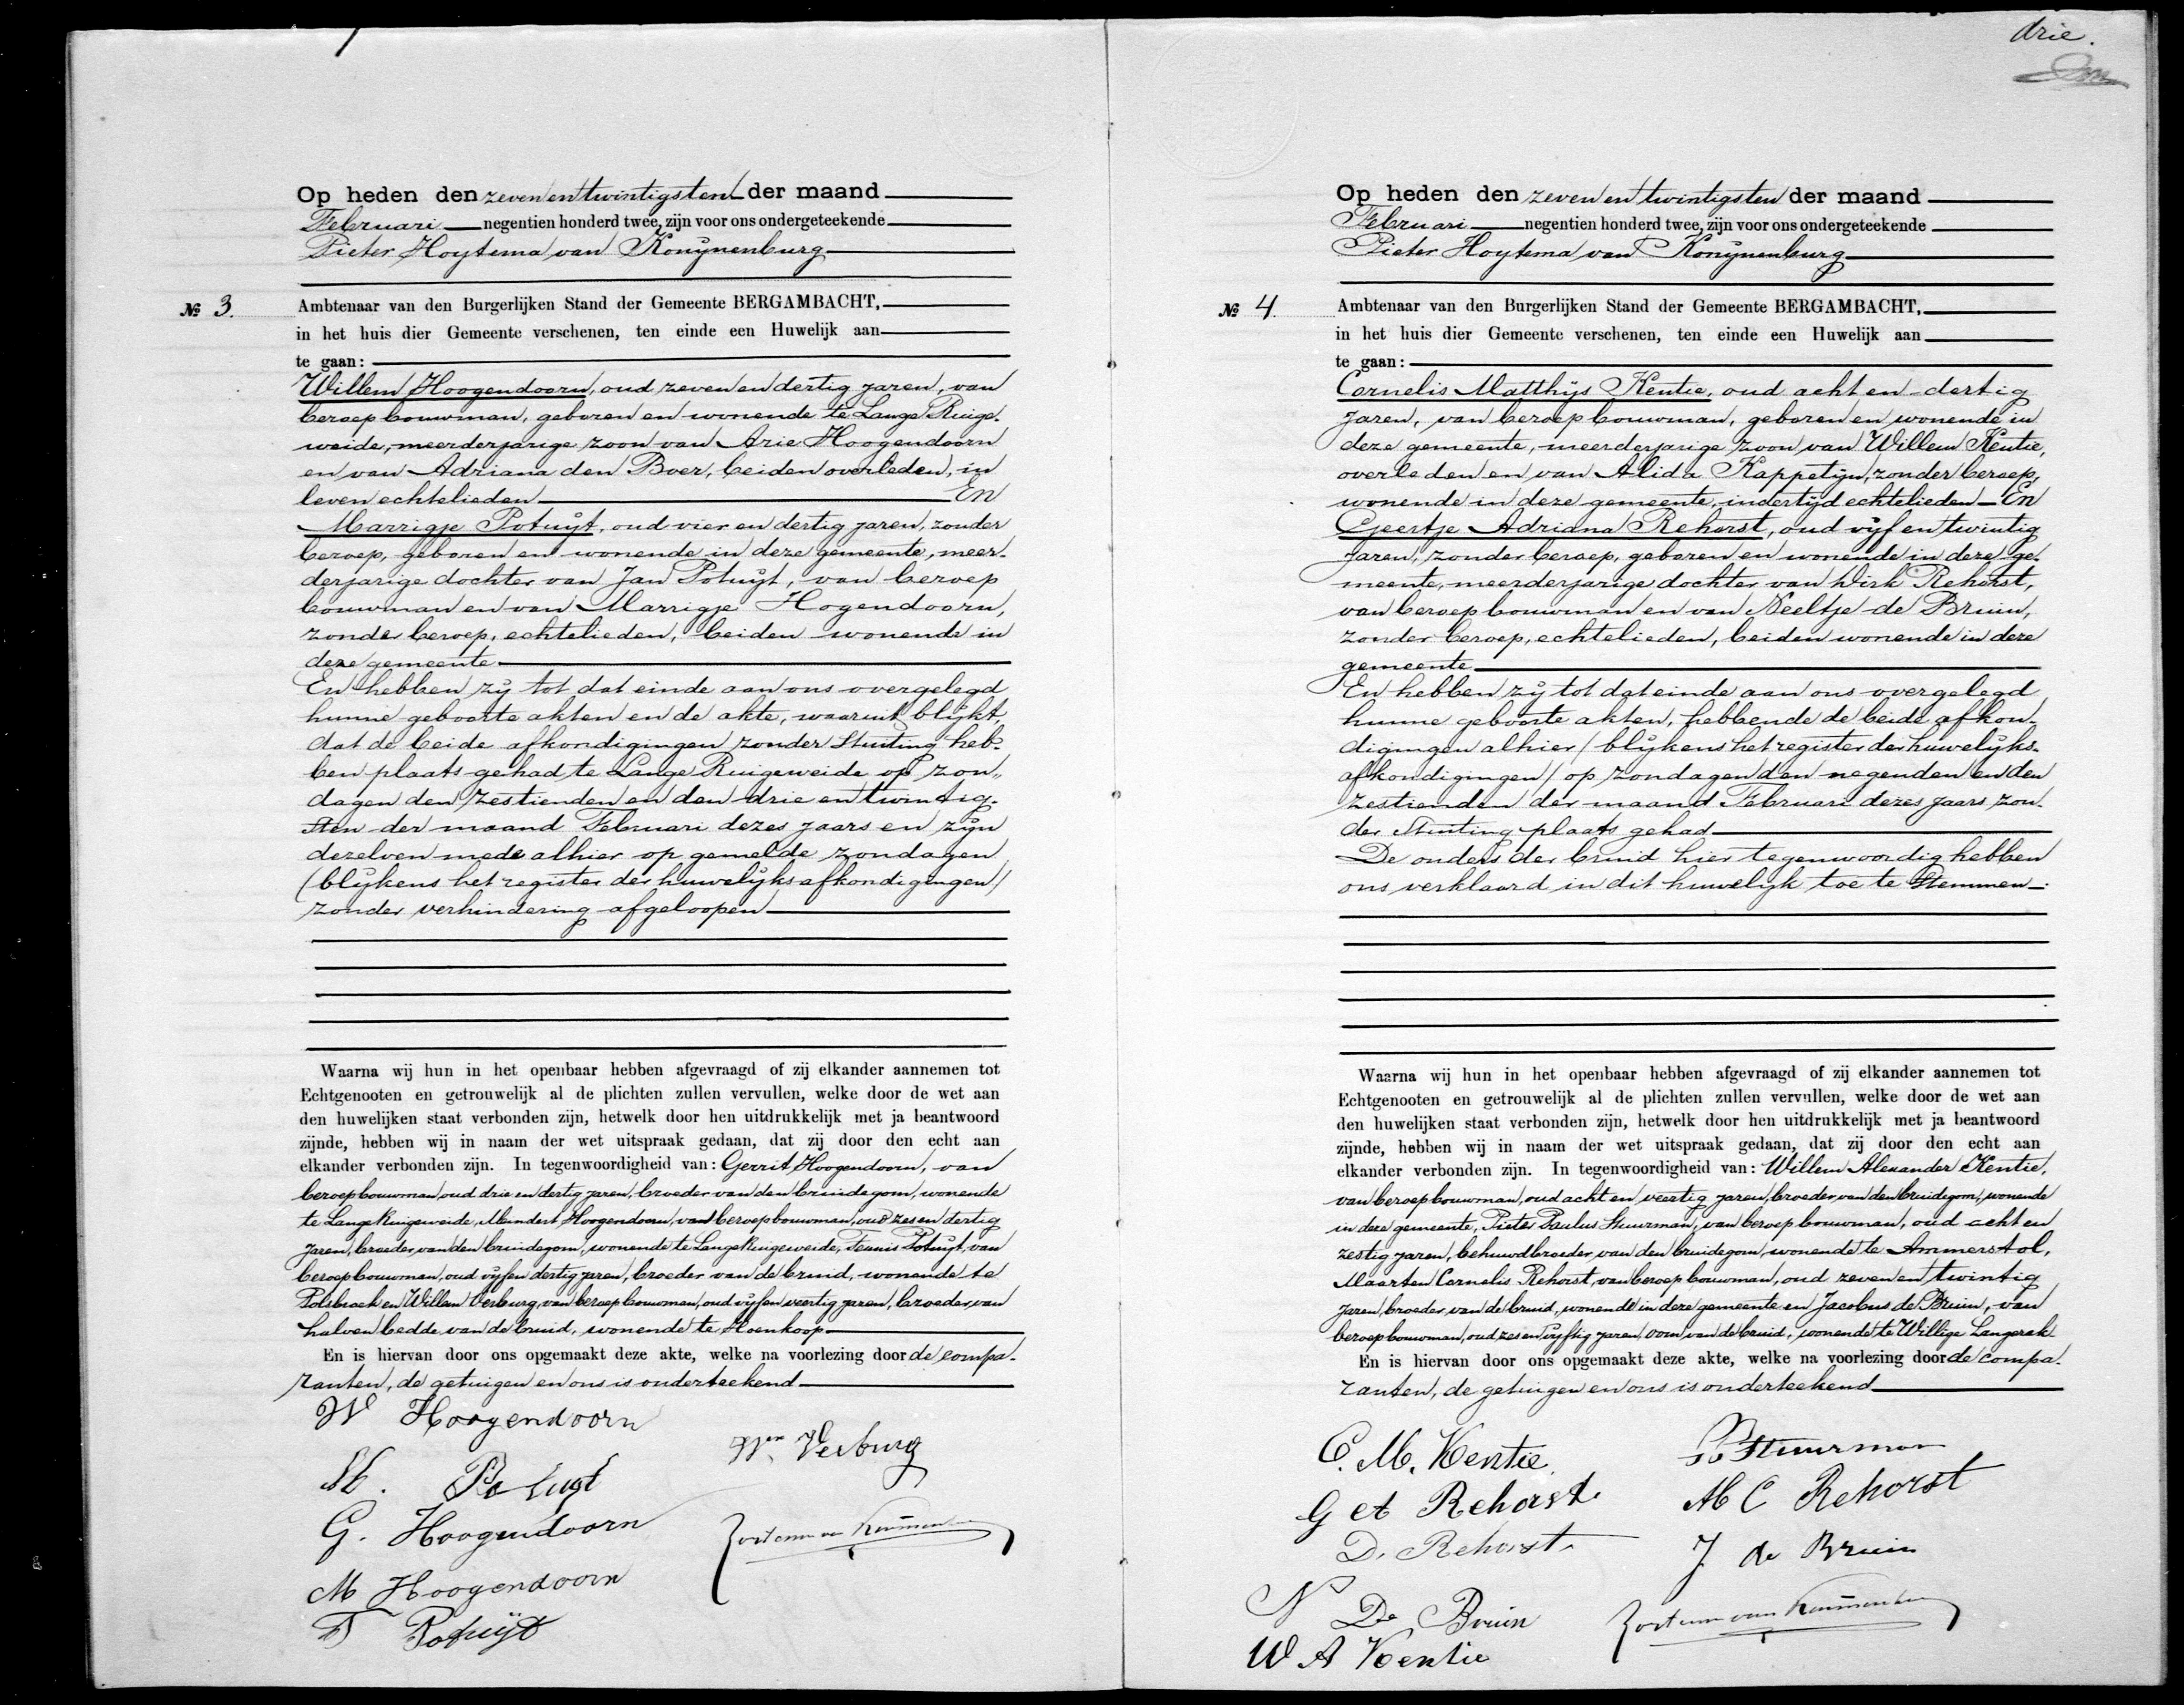 Op heden den zeven en twintigsten der maand
Februari negentien honderd twee, zijn voor ons ondergeteekende
Pieter Hoytema van Konijnenburg
Nº 3. Ambtenaar van den Burgerlijken Stand der Gemeente BERGAMBACHT,
in het huis dier Gemeente verschenen, ten einde een Huwelijk aan
te gaan:
Willem Hoogendoorn, oud zeven en dertig jaren, van
beroep bouwman, geboren en wonende te Lange Ruige-
weide, meerderjarige zoon van Arie Hoogendoorn
en van Adriana den Boer, beiden overleden, in
leven echtelieden En
Marrigje Potuijt, oud vier en dertig jaren, zonder
beroep, geboren en wonende in deze gemeente, meer-
derjarige dochter van Jan Potuijt, van beroep
bouwman en van Marrigje Hogendoorn,
zonder beroep, echtelieden, beiden wonende in
deze gemeente
En hebben zij tot dat einde aan ons overgelegd
hunne geboorte akten en de akte, waaruit blijkt,
dat de beide afkondigingen zonder stuiting heb-
ben plaats gehad te Lange Ruigeweide op zon„
dagen den zestienden en den drie en twintig-
sten der maand Februari dezes jaars en zijn
dezelven mede alhier op gemelde zondagen
(blijkens het register der huwelijksafkondigingen)
zonder verhindering afgeloopen
Waarna wij hun in het openbaar hebben afgevraagd of zij elkander aannemen tot
Echtgenooten en getrouwelijk al de plichten zullen vervullen, welke door de wet aan
den huwelijken staat verbonden zijn, hetwelk door hen uitdrukkelijk met ja beantwoord
zijnde, hebben wij in naam der wet uitspraak gedaan, dat zij door den echt aan
elkander verbonden zijn. In tegenwoordigheid van: Gerrit Hoogendoorn, van
beroep bouwman, oud drie en dertig jaren, broeder van den bruidegom, wonende
te Lange Ruigeweide, Meindert Hoogendoorn, van beroep bouwman, oud zes en dertig
jaren, broeder van den bruidegom, wonende te Lange Ruigeweide, Teunis Potuijt, van
beroep bouwman, oud vijf en dertig jaren, broeder van de bruid, wonende te
Polsbroek en Willem Verburg, van beroep bouwman, oud vijf en veertig jaren, broeder van
halven bedde van de bruid, wonende te Hoenkoop
En is hiervan door ons opgemaakt deze akte, welke na voorlezing door de compa-
ranten, de getuigen en ons is onderteekend
W Hoogendoorn
Wm Verburg
M. Potuyt
G. Hoogendoorn
M Hoogendoorn
T Potuijt
drie.
Op heden den zeven en twintigsten der maand
Februari negentien honderd twee, zijn voor ons ondergeteekende
Pieter Hoytema van Konijnenburg
Nº 4. Ambtenaar van den Burgerlijken Stand der Gemeente BERGAMBACHT,
in het huis dier Gemeente verschenen, ten einde een Huwelijk aan
te gaan:
Cornelis Matthijs Kentie, oud acht en dertig
jaren, van beroep bouwman, geboren en wonende in
deze gemeente, meerderjarige zoon van Willem Kentie,
overleden en van Alida Kappetijn, zonder beroep,
wonende in deze gemeente, indertijd echtelieden En
Geertje Adriana Rehorst, oud vijf en twintig
jaren, zonder beroep, geboren en wonende in deze ge-
meente, meerderjarige dochter van Dirk Rehorst,
van beroep bouwman en van Neeltje de Bruin,
zonder beroep, echtelieden, beiden wonende in deze
gemeente
En hebben zij tot dat einde aan ons overgelegd
hunne geboorte akten, hebbende de beide afkon-
digingen alhier (blijkens het register der huwelijks-
afkondigingen) op zondagen den negenden en den
zestienden der maand Februari dezes jaars zon-
der stuiting plaats gehad
De ouders der bruid hier tegenwoordig hebben
ons verklaard in dit huwelijk toe te stemmen.
Waarna wij hun in het openbaar hebben afgevraagd of zij elkander aannemen tot
Echtgenooten en getrouwelijk al de plichten zullen vervullen, welke door de wet aan
den huwelijken staat verbonden zijn, hetwelk door hen uitdrukkelijk met ja beantwoord
zijnde, hebben wij in naam der wet uitspraak gedaan, dat zij door den echt aan
elkander verbonden zijn. In tegenwoordigheid van: Willem Alexander Kentie,
van beroep bouwman, oud acht en veertig jaren, broeder van den bruidegom, wonende
in deze gemeente, Pieter Paulus Stuurman, van beroep bouwman, oud acht en
zestig jaren, behuwdbroeder van den bruidegom, wonende te Ammerstol,
Maarten Cornelis Rehorst, van beroep bouwman, oud zeven en twintig
jaren, broeder van de bruid, wonende in deze gemeente en Jacobus de Bruin, van
beroep bouwman, oud zes en vijftig jaren, oom van de bruid, wonende te Willige Langerak
En is hiervan door ons opgemaakt deze akte, welke na voorlezing door de compa-
ranten, de getuigen en ons is onderteekend
C. M. Kentie
PP Stuurman
G A Rehorst.
M C Rehorst
D. Rehorst.
J de Bruin
N De Bruin
W A Kentie